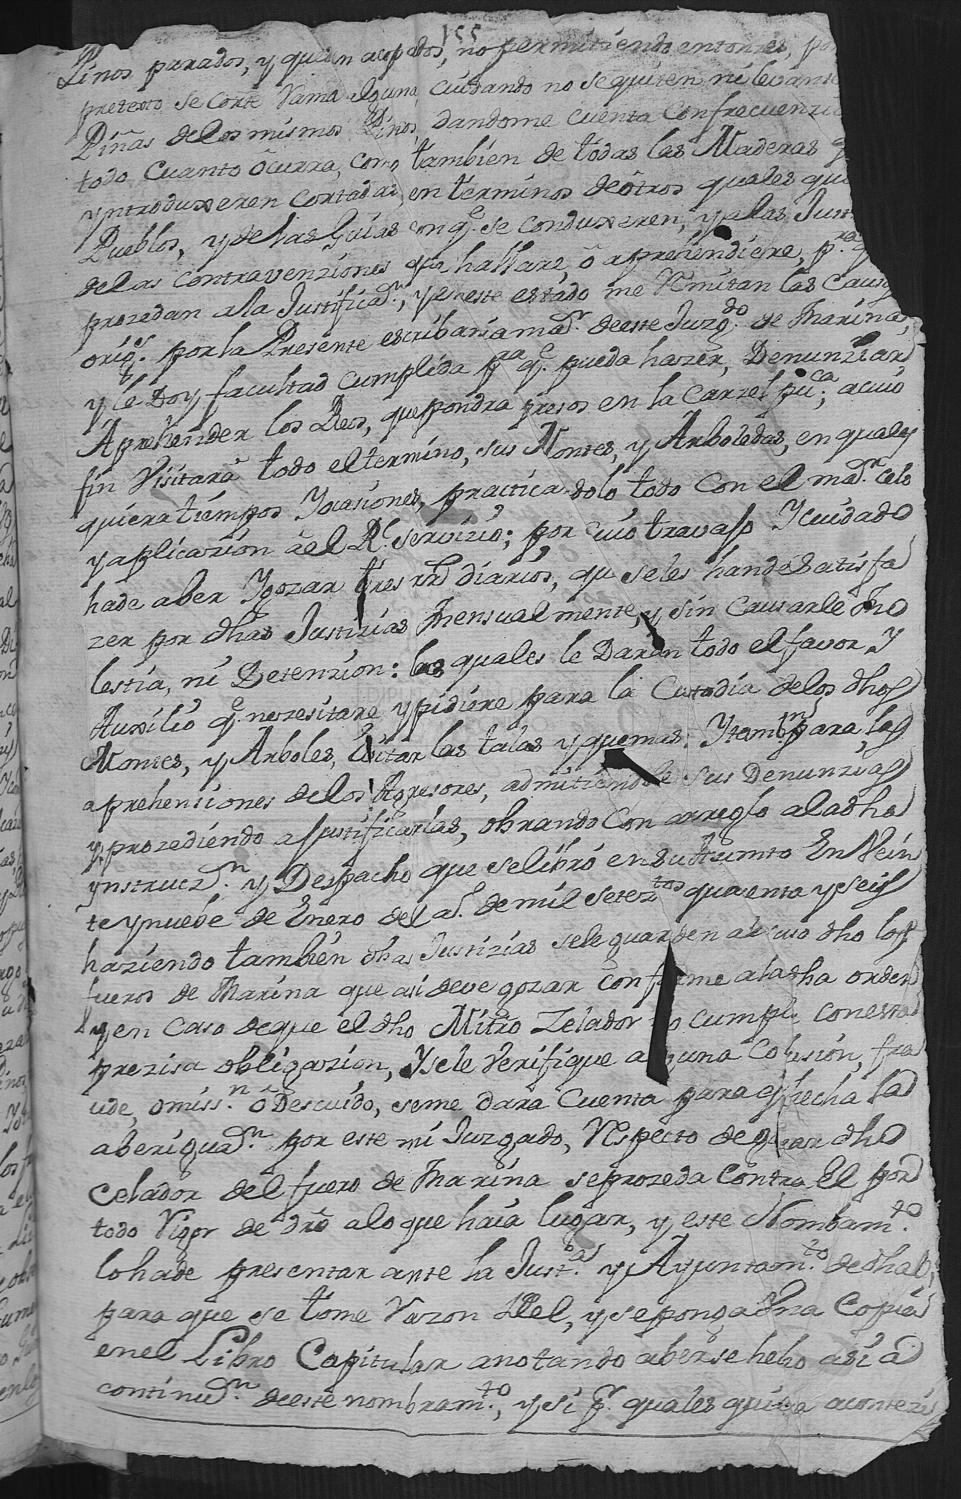 155
Pinos parados, y queden acopados, no permitiendo entonzes, por
pretexto se corte Rama alguna, cuidando no se quiten, ni levante
Piñas de los mismos Pinos, dandome cuenta con frecuenzia
todo cuanto ôcurra, como tambien de todas las Maderas q
yntroduxeren cortadas, en terminos de ôtros quales qui
Pueblos, y de las Guias con q.e se conduxeren, y a las Jus
de las contravenziones que hallare, ô aprehendiere, p.ra q
prozedan a la Justificaz.n, y en este estado me Remitan las Causas
orig.s por la Presente escribania ma.r de este Juzg.do de Marina,
y le Doy facultad cumplida p.ra q.e pueda hazer, Denunziar
Aprehender los Reos, que pondra presos en la Carzel pu.ca; a cuio
fin Visitara todo el termino, sus Montes, y Arboledas, en quales
quiera tiempos Y ocasiones, practicandolo todo con el ma.r celo
y aplicazion a el R.l Servizio; por cuio travajo Y cuidado
hade aber Y gozar tres rr.s diarios, que se les han de satisfa
zer por dhas Justizias Mensualmente, y sin causarle mo
lestia, ni Detenzion: las quales le Daran todo el favor Y
Auxilio q.e nezesitare y pidiere para la Custodia de los dhos
Montes, y Arboles, Evitar las talas y quemas. Y tamb.n para las
aprehensiones de los Agresores, admitiendole sus Denunzias
y prozediendo a justificarlas, obrando con arreglo a la dha
ynstrucz.n y Despacho que se libró en su Asumto En Vein
te y nuebe de Enero del a.o de mil setez.tos quarenta y seis
haziendo tambien dhas Justizias se le guarden al suso dho los
fueros de Marina que asi deve gozar conforme a la dha orden
y en caso de que el dho Mttro Zelador no cumpla con esta
preziza obligazion, Y se le Verifique alguna Colusion, fra
ude, omiss.n ô Descuido, se me dara Cuenta para q.e fecha la
aberiguaz.n por este mi Juzgado, Respecto de gozar dho
Celador del fuero de Marina se prozeda contra El por
todo Vigor de dro a lo que haia lugar, y este Nombram.to
lo hade presentar ante la Just.as y Ayuntam.to de dha
para que se tome Razon del, y se ponga dha Copia
en el Libro Capitular anotando aberse hecho asi a
continuaz.n de este nombram.to, y si p.r quales quiera aconteziº